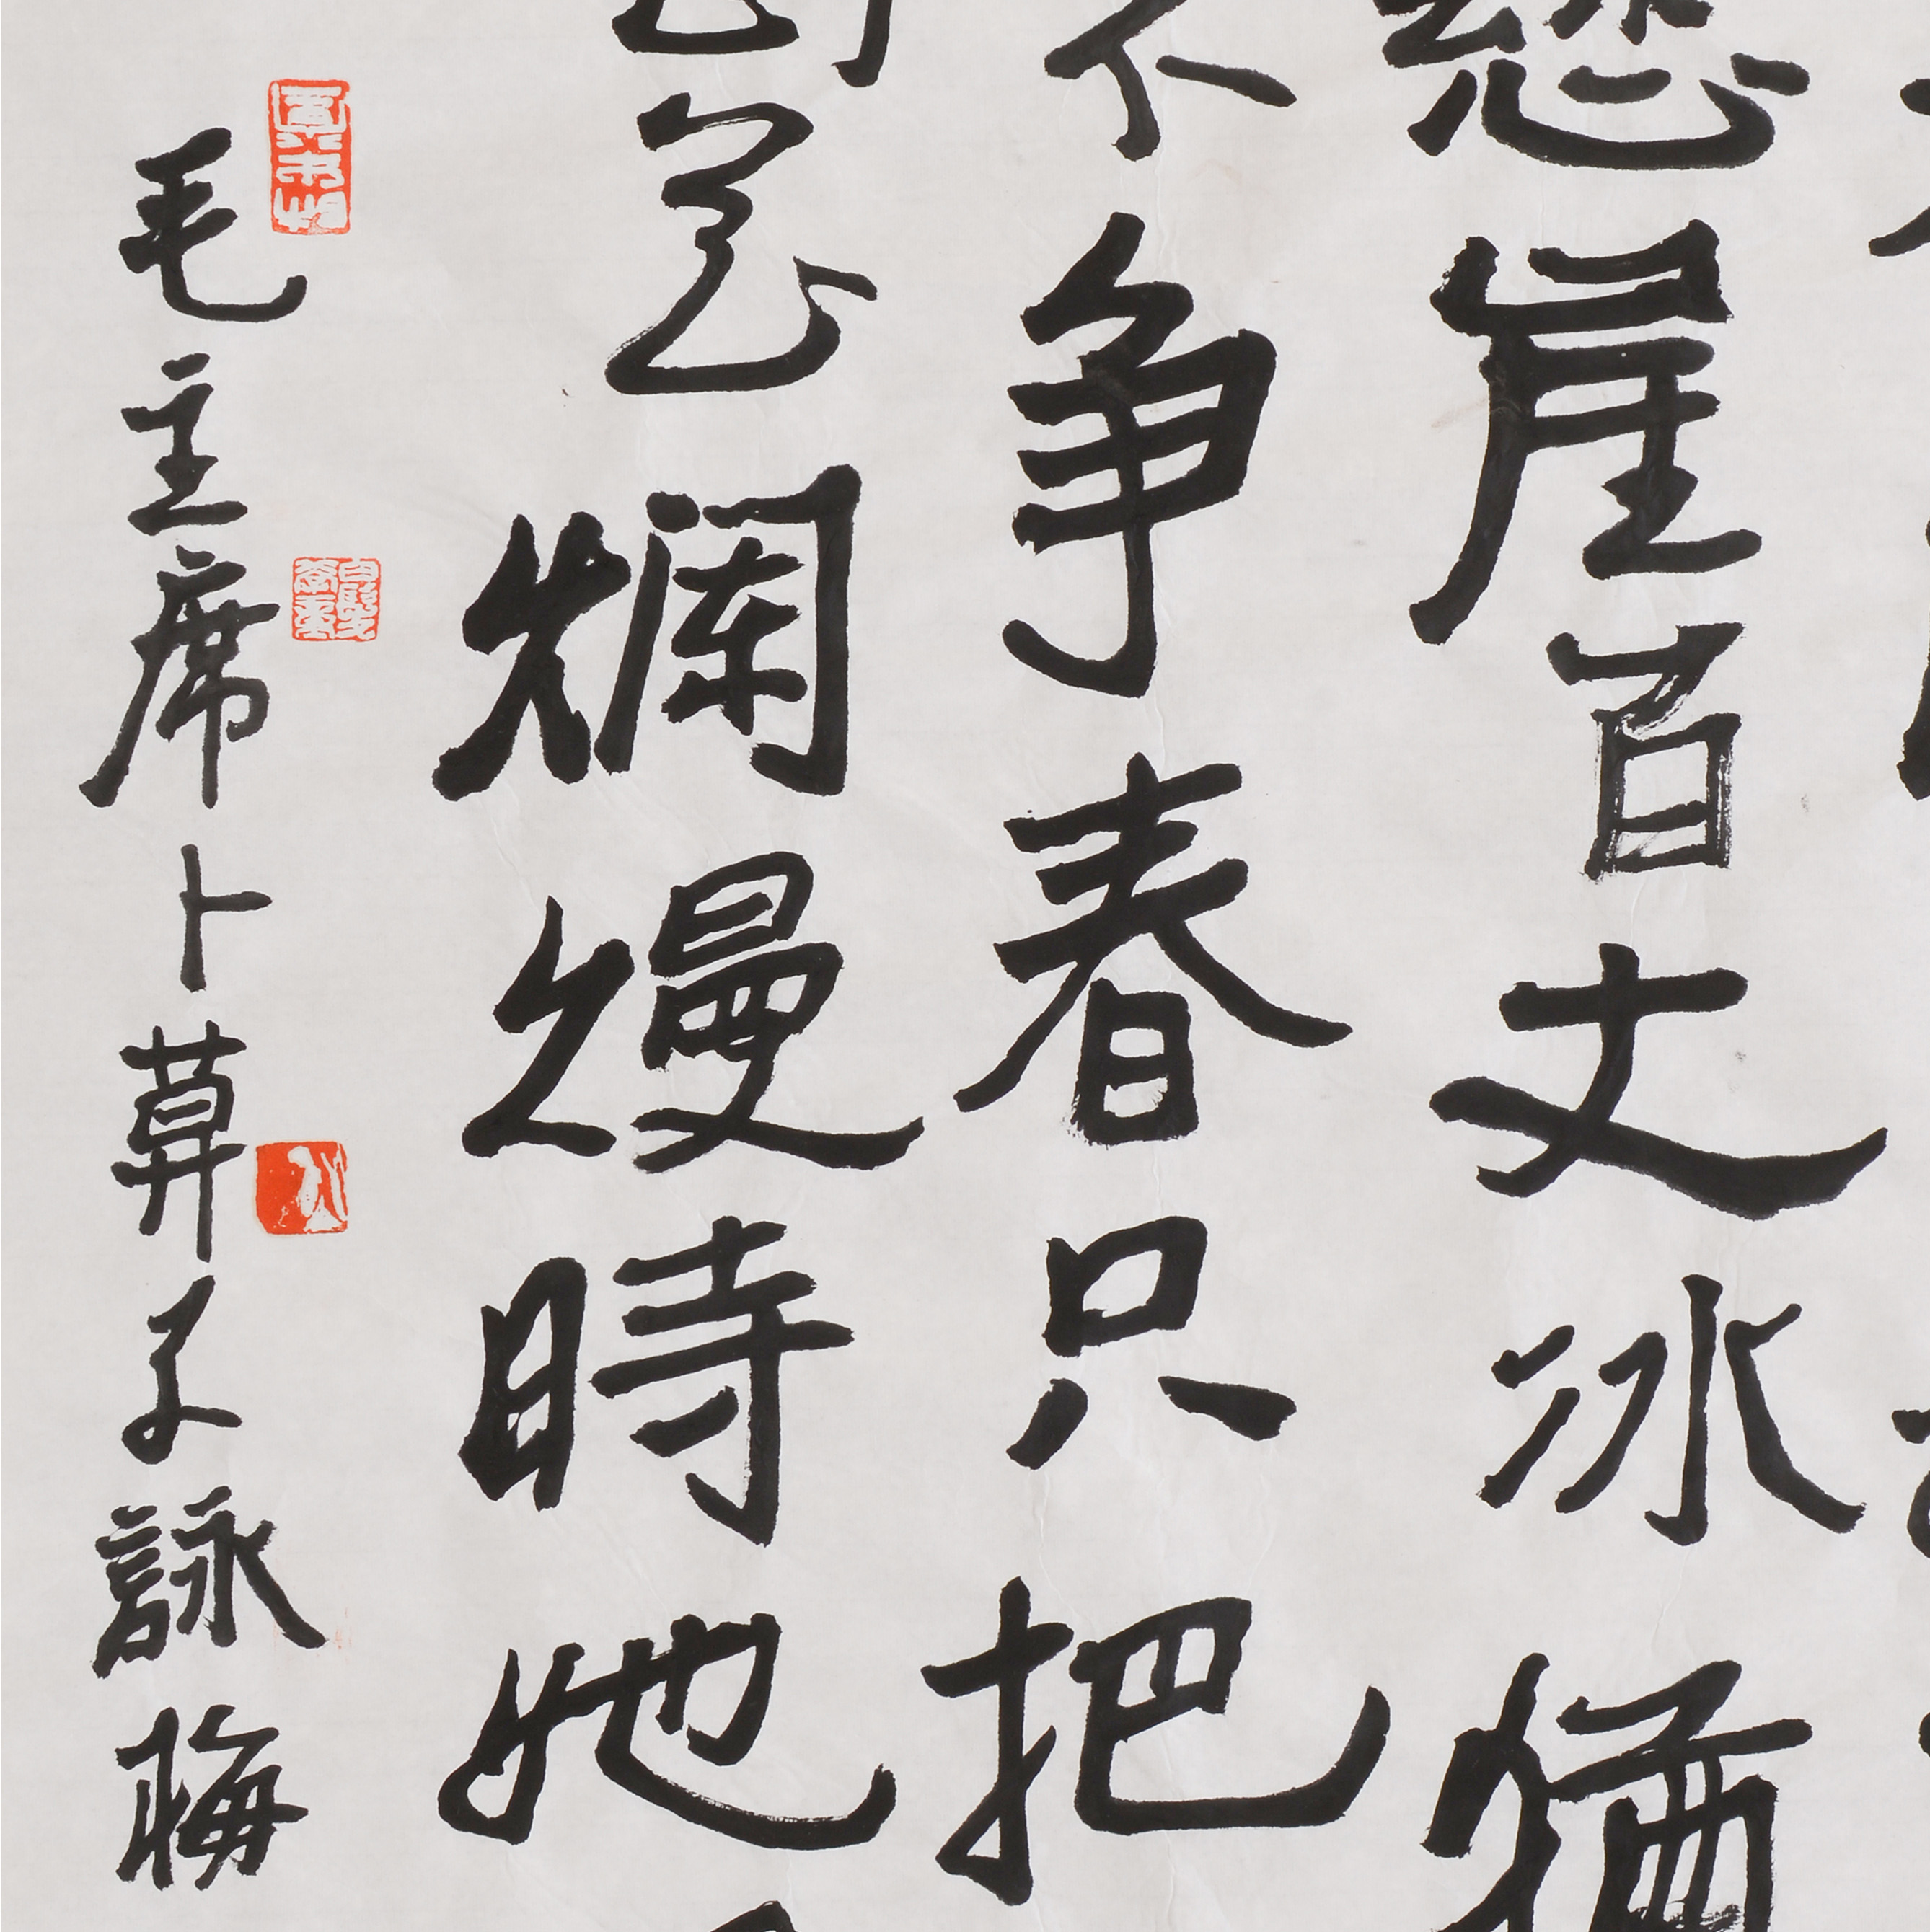 懸崖百丈冰猶
不争春只把
花爛熳時她
毛主席卜算子詠梅